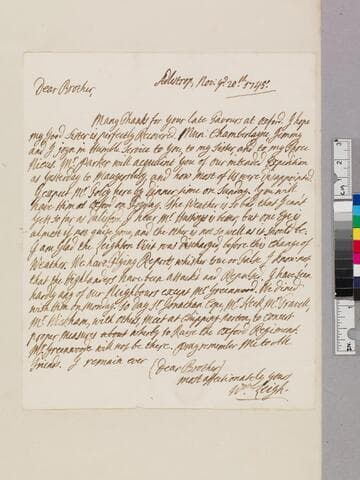 Adlestrop, Nov: ye. 20th. 1745.
Dear Brother,
Many Thanks for your late favours at Oxford. I hope
my good Sister is perfectly recovered. Mrs: Chamberlayne, Jemmy
and I joyn in Humble Service to you, to my Sister and to my
Niece. Mr. Parker will acquaint you of our intended Expedition
as yesterday to and how most of us were disappointed
I expect Mr. Jolly here by dinner time on Sunday. You will
have him at Oxford on Fryday. The Weather is so bad that I can't
get so far as I hear Mr. Hastings's is lame, but one Eye is
almost if not quite gone, and the other is not so well as it should be.
I am glad the Leighton Visit was before this change of
Weather. We have Flying Reports whether true or false, I know not
that the Highlanders have been attack'd and Repulsed. I have seen
hardly any of our Neighbours except Mr. Greenwood. We dined
with him on Monday. To day Sr. Jonathan Cope, Mr. Keck Mr.
Mr. Wickham, with others meet at Chipping norton, to concert
proper measures about a body to Raise the Oxford Regiment.
Mr. Greenwood will not be there. Pray remember Me to All
Friends. I remain ever
(Dear Brother)
most affectionately yours
Wm. Leigh.